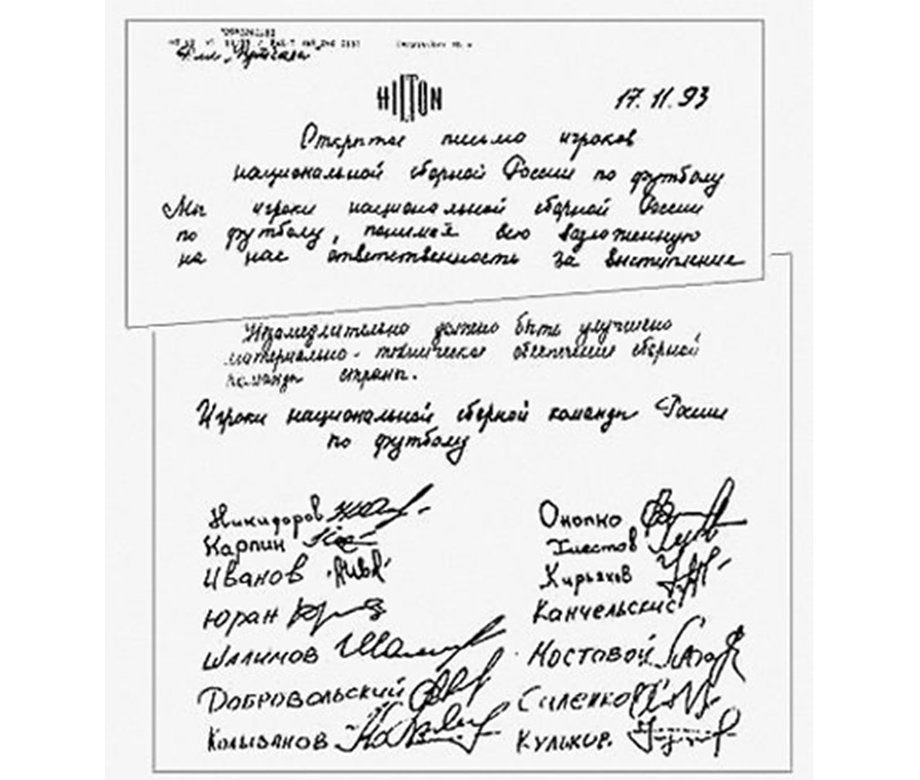 HILTON
17.11.93
Открытое письмо игроков
национальной сборной России по футболу
Мы игроки национальной сборной России
по футболу, понимая всю возложенную
на нас ответственность за выступление
Незамедлительно должно быть улучшено
материально-техническое обеспечение сборной
команды страны.
Игроки национальной сборной команды России
по футболу
Никифоров
Онопко
Карпин
Хлестов
Иванов
Кирьяков
Юран
Канчельскис
Шалимов
Мостовой
Добровольский
Саленко
Колыванов
Кульков